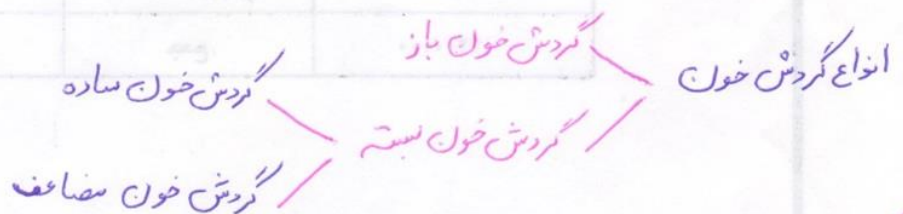 انواع گردش خون
گردش خون باز
گردش خون بسته
گردش خون ساده
گردش خون مضاعف